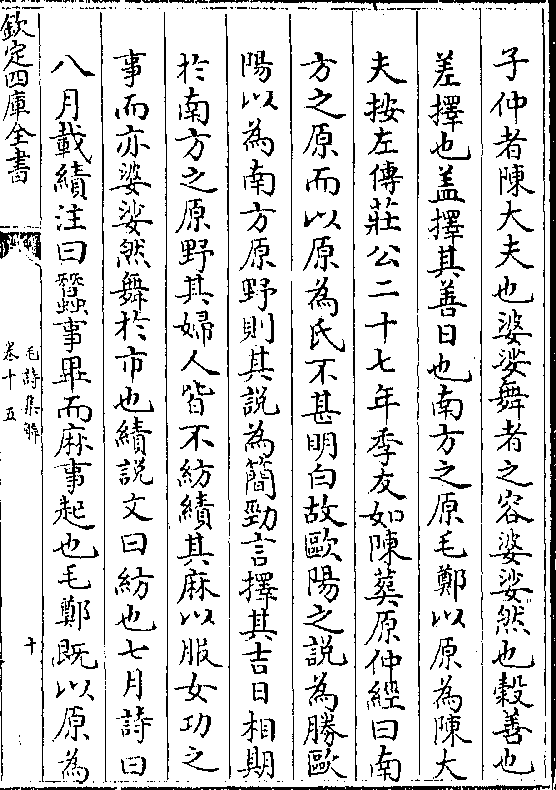 子仲者陳大夫也婆娑舞者之容婆娑然也穀善也
差擇也盖擇其善日也南方之原毛鄭以原為陳大
夫按左傳莊公二十七年季友如陳葬原仲經曰南
方之原而以原為氏不甚明白故歐陽之説為勝歐
陽以為南方原野則其説為簡勁言擇其吉日相期
於南方之原野其婦人皆不紡績其麻以服女功之
事而亦婆娑然舞於市也績説文曰紡也七月詩曰
八月載績注曰蠶事畢而麻事起也毛鄭既以原為
欽定四庫全書
毛詩集解
卷十五
十